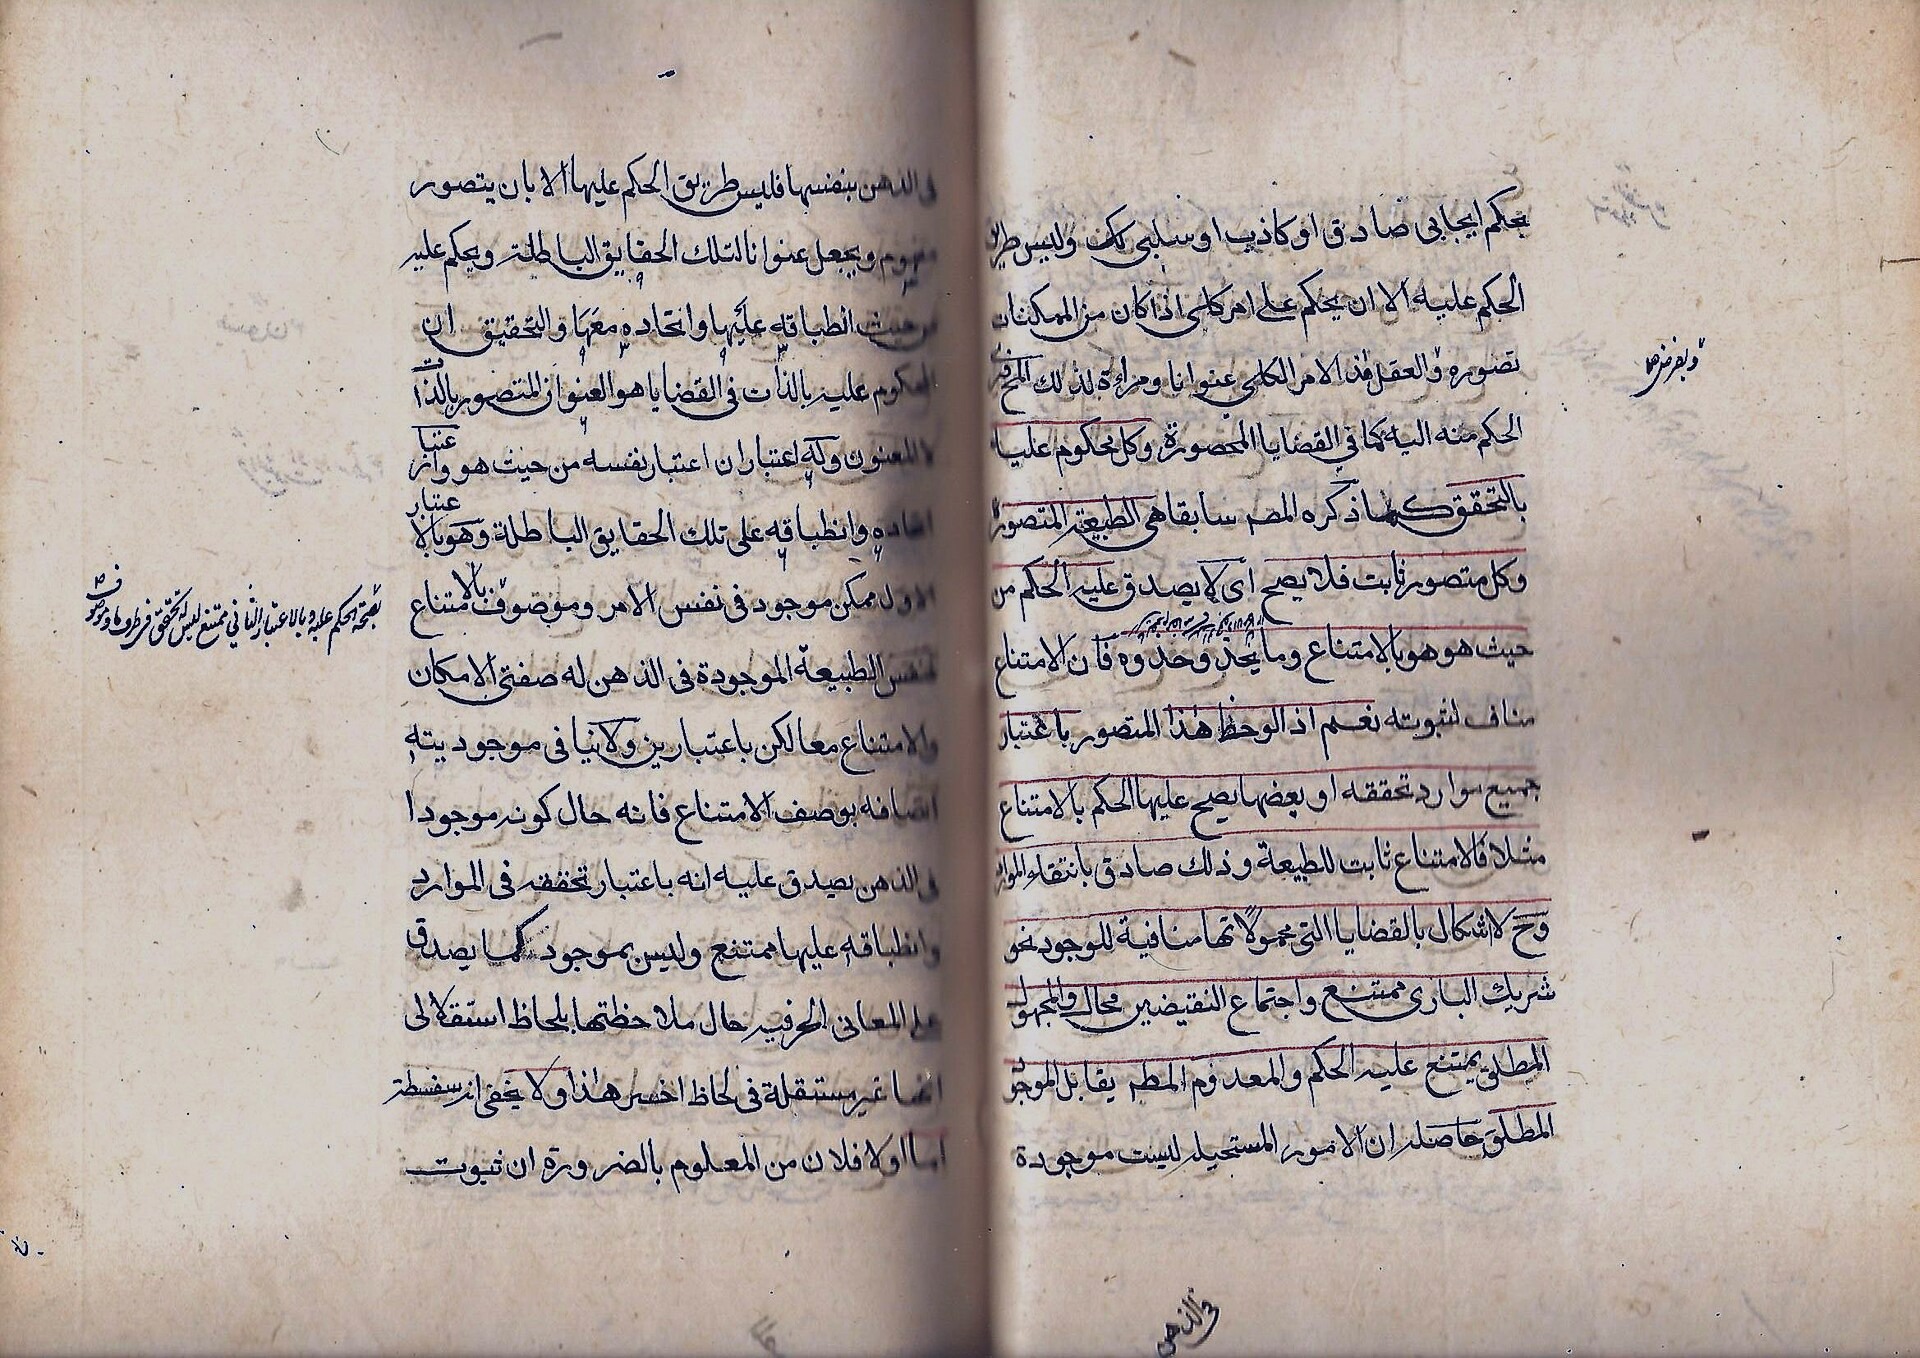 بحكم ايجابى صادق او كاذب او سلبى كك وليس طريق
الحكم عليه الا ان يحكم على امر كلى اذا كان من الممكنات
تصوره والعقل هذا الامر الكلى عنوانا ومراءة لذلك
الحكم منه اليه كما فى القضايا المحصورة وكل محكوم عليها
بالتحقق كما ذكره المصـ سابقا هى الطبيعة المتصورة
وكل متصور ثابت فلا يصح اى لا يصدق عليه الحكم من
حيث هو هو بالامتناع وما يحذو حذوه فان الامتناع
مناف لثبوته نعم اذا لوحظ هذا المتصور باعتبار
جميع موارد تحققه او بعضها يصح عليها الحكم بالامتناع
مثلا فالامتناع ثابت للطبيعة وذلك صادق بانتفاء الموارد
وح لا اشكال بالقضايا التى محمولاتها منافية للوجود نحو
شريك البارى ممتنع واجتماع النقيضين محال والمجهول
المطلق يمتنع عليه الحكم والمعدوم المطـ يقابل الموجود
المطلق حاصله ان الامور المستحيلة ليست موجودة
فى الذهن
فى الذهن بنفسها فليس طريق الحكم عليها الا بان يتصور
مفهوم ويجعل عنوانا لتلك الحقايق الباطلة ويحكم عليه
من حيث انطباقه عليها واتحاده معها والتحقيق ان
المحكوم عليه بالذات فى القضايا هو العنوان المتصور بالذات
لا المعنون وله اعتباران اعتبار نفسه من حيث هو و اعتبار
اتحاده وانطباقه على تلك الحقايق الباطلة وهو بالاعتبار
الاول ممكن موجود فى نفس الامر وموصوف بالامتناع
بصحة الحكم عليه وبالاعتبار الثانى ممتنع ليس له تحقق
فنفس الطبيعة الموجودة فى الذهن له صفتى الامكان
والامتناع معا لكن باعتبارين ولا ينافى موجوديته
اتصافه بوصف الامتناع فانه حال كونه موجودا
فى الذهن يصدق عليه انه باعتبار تحققه فى الموارد
وانطباقه عليها ممتنع وليس بموجود كما يصدق
على المعانى الحرفية حال ملاحظتها بلحاظ استقلالى
انها غير مستقلة فى لحاظ اخر هذا ولا يخفى انه سفسطة
اما اولا فلان من المعلوم بالضرورة ان ثبوت